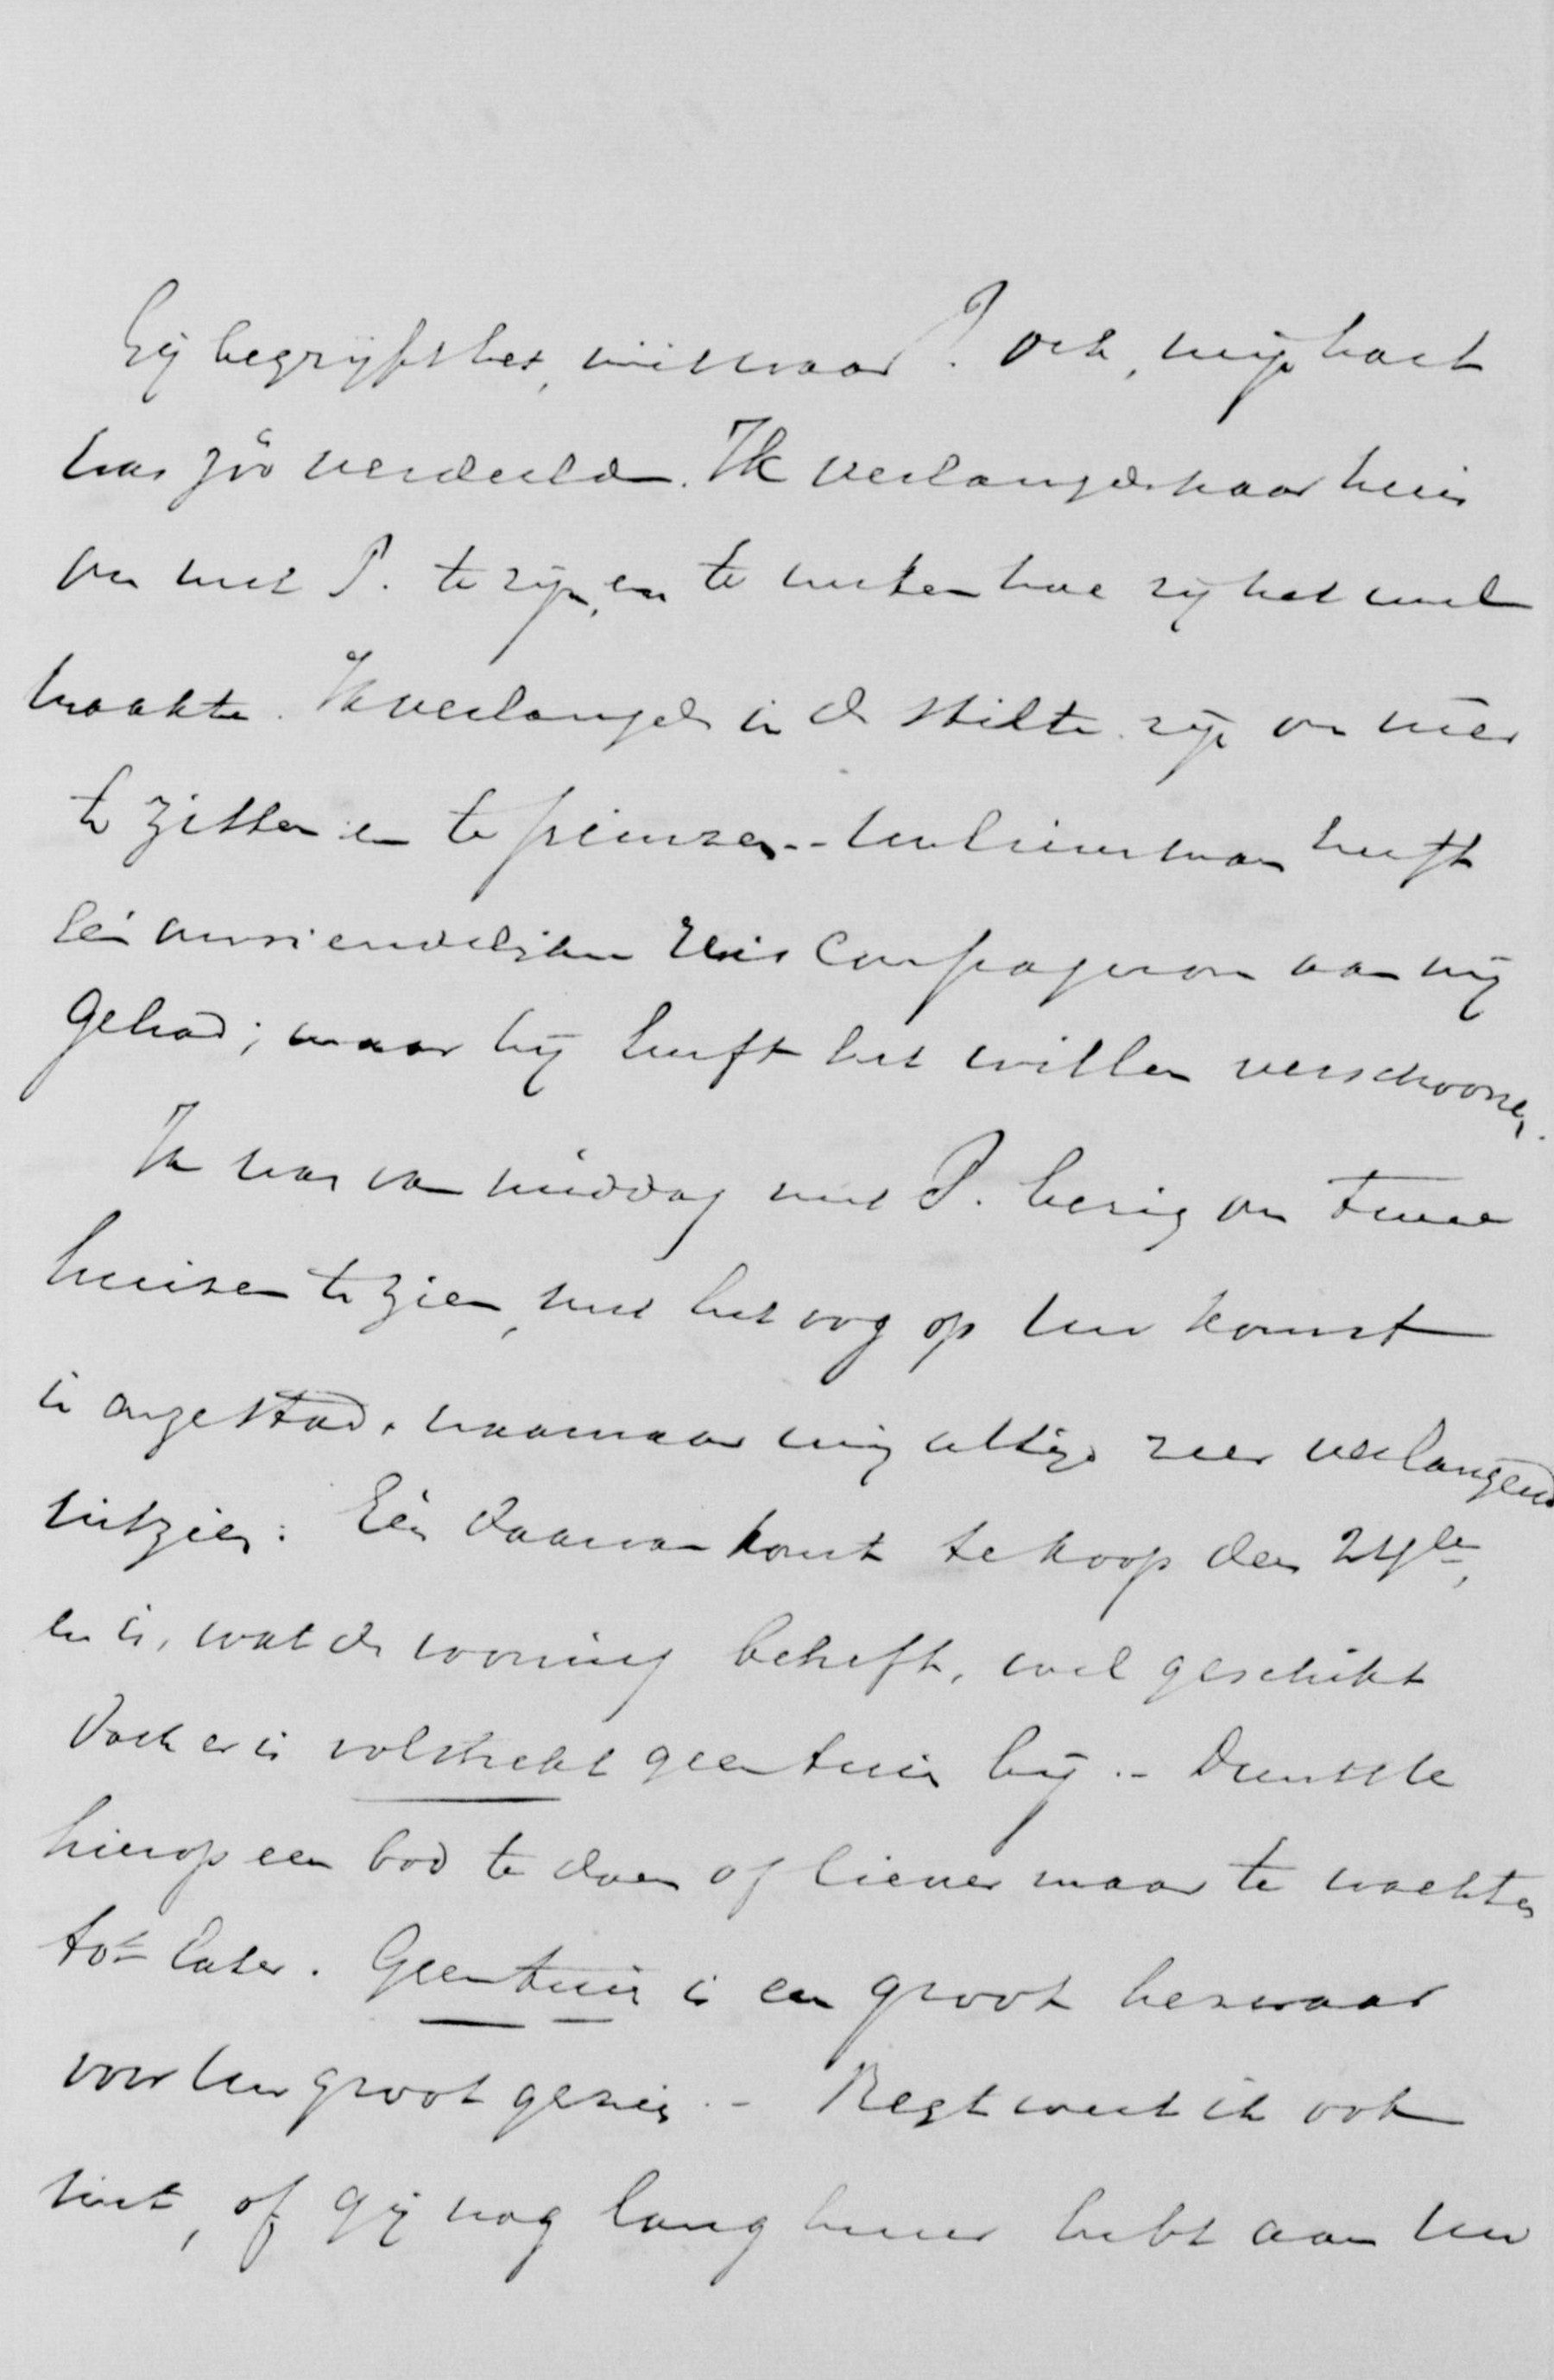 Gij begrijpt het, niet waar? Och, mijn hart
was zóó verdeeld. Ik verlangde naar huis
om met P. te zijn, en te weten hoe zij het wel
maakte. Ik verlangde in de stilte zijn om neêr
te zitten en te peinzen. - Uw lieve man heeft
één onvriendelijken reiscompagnon aan mij
gehad; maar hij heeft het willen verschoonen.
Ik was van middag met P. bezig om twee
huizen te zien, met het oog op uw komst
in onze stad, waarnaar wij altijd zeer verlangend
uitzien. Eén daarvan komt te koop den 24sten,
en is, wat de woning betreft, wel geschikt
doch er is volstrekt geen tuin bij. - Dunkt U
hierop een bod te doen of liever maar te wachten
tot later. Geen tuin is een groot bezwaar
voor uw groot gezin. - Regt weet ik ook
niet, of gij nog lang huur hebt aan uw